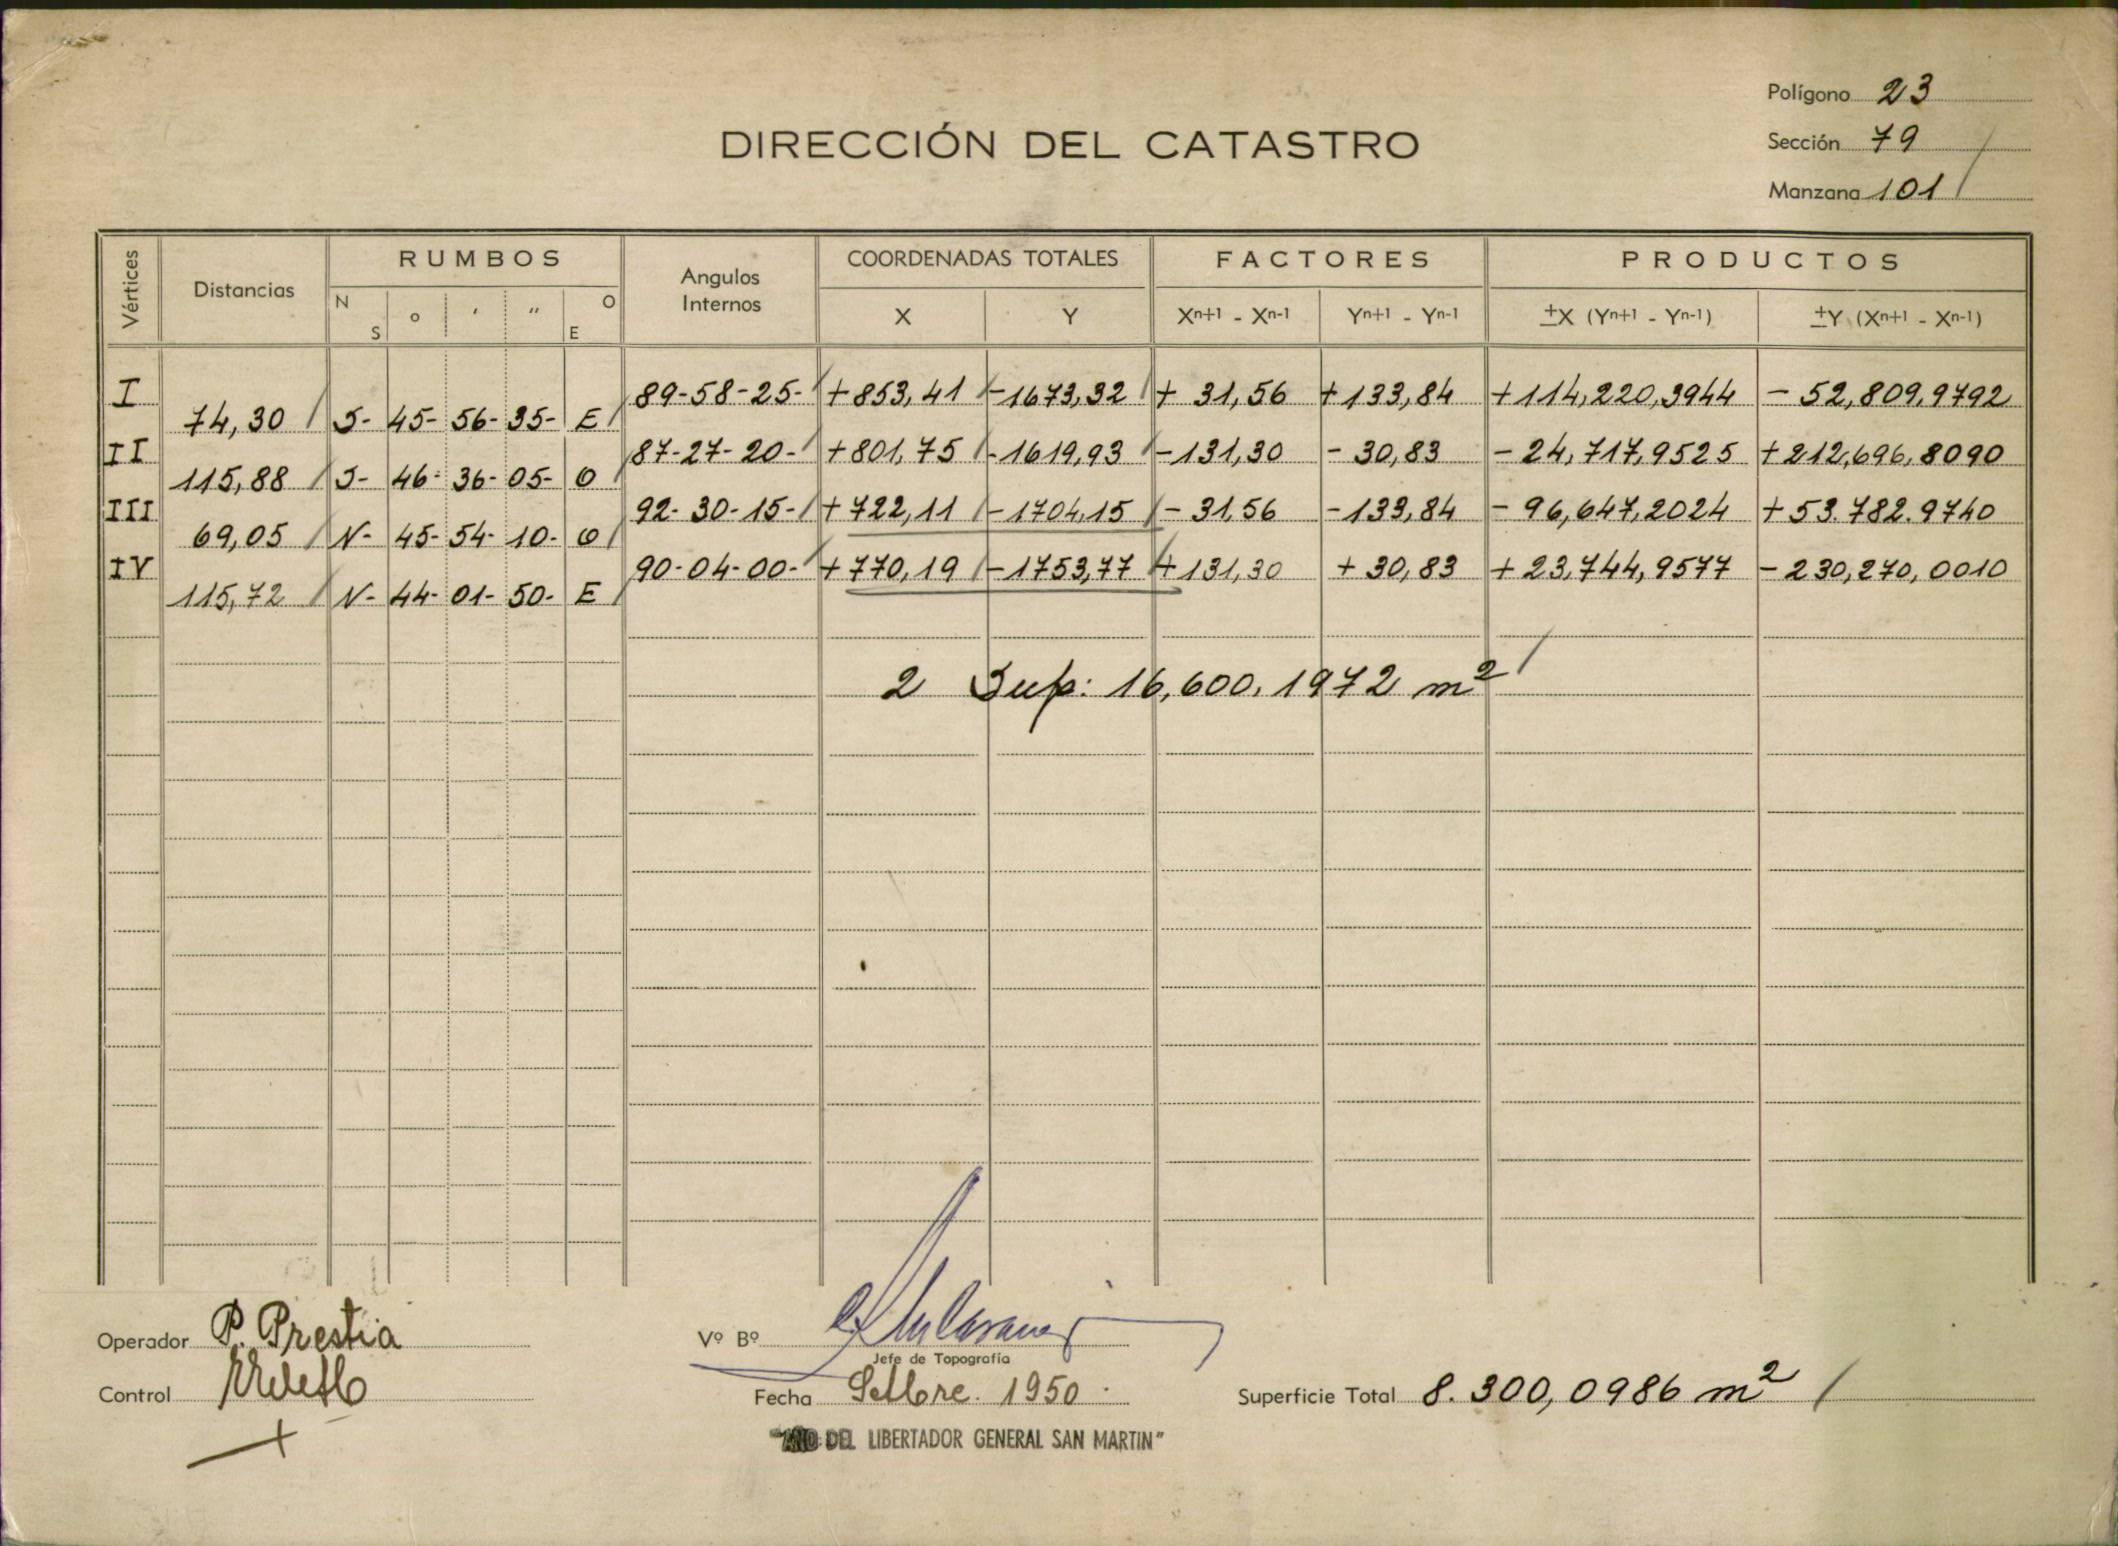 Polígono 23
DIRECCIÓN DEL CATASTRO
Sección 79
Manzana 101
Vértices
Distancias
RUMBOS
N S o ' " O E
Angulos Internos
COORDENADAS TOTALES
X Y
FACTORES
Xn+1 - Xn-1 Yn+1 - Yn-1
PRODUCTOS
±X (Yn+1 - Yn-1) ±Y (Xn+1 - Xn-1)
I 89-58-25- +853,41 -1673,32 + 31,56 +133,84 +114,220,3944 - 52,809,9792
74,30 S- 45- 56- 35- E
II 87-27-20- +801,75 -1619,93 -131,30 - 30,83 - 24,717,9525 +212,696,8090
115,88 S- 46- 36- 05- O
III 92-30-15- +722,11 -1704,15 - 31,56 -133,84 - 96,647,2024 +53.782.9740
69,05 N- 45- 54- 10- O
IV 90-04-00- +770,19 -1753,77 +131,30 + 30,83 + 23,744,9577 - 230,270,0010
115,72 N- 44- 01- 50- E
2 Sup: 16,600,1972 m²
Operador P. Prestia
Vº Bº
Jefe de Topografía
Control
Fecha Setbre. 1950.
Superficie Total 8.300,0986 m²
DEL LIBERTADOR GENERAL SAN MARTIN"